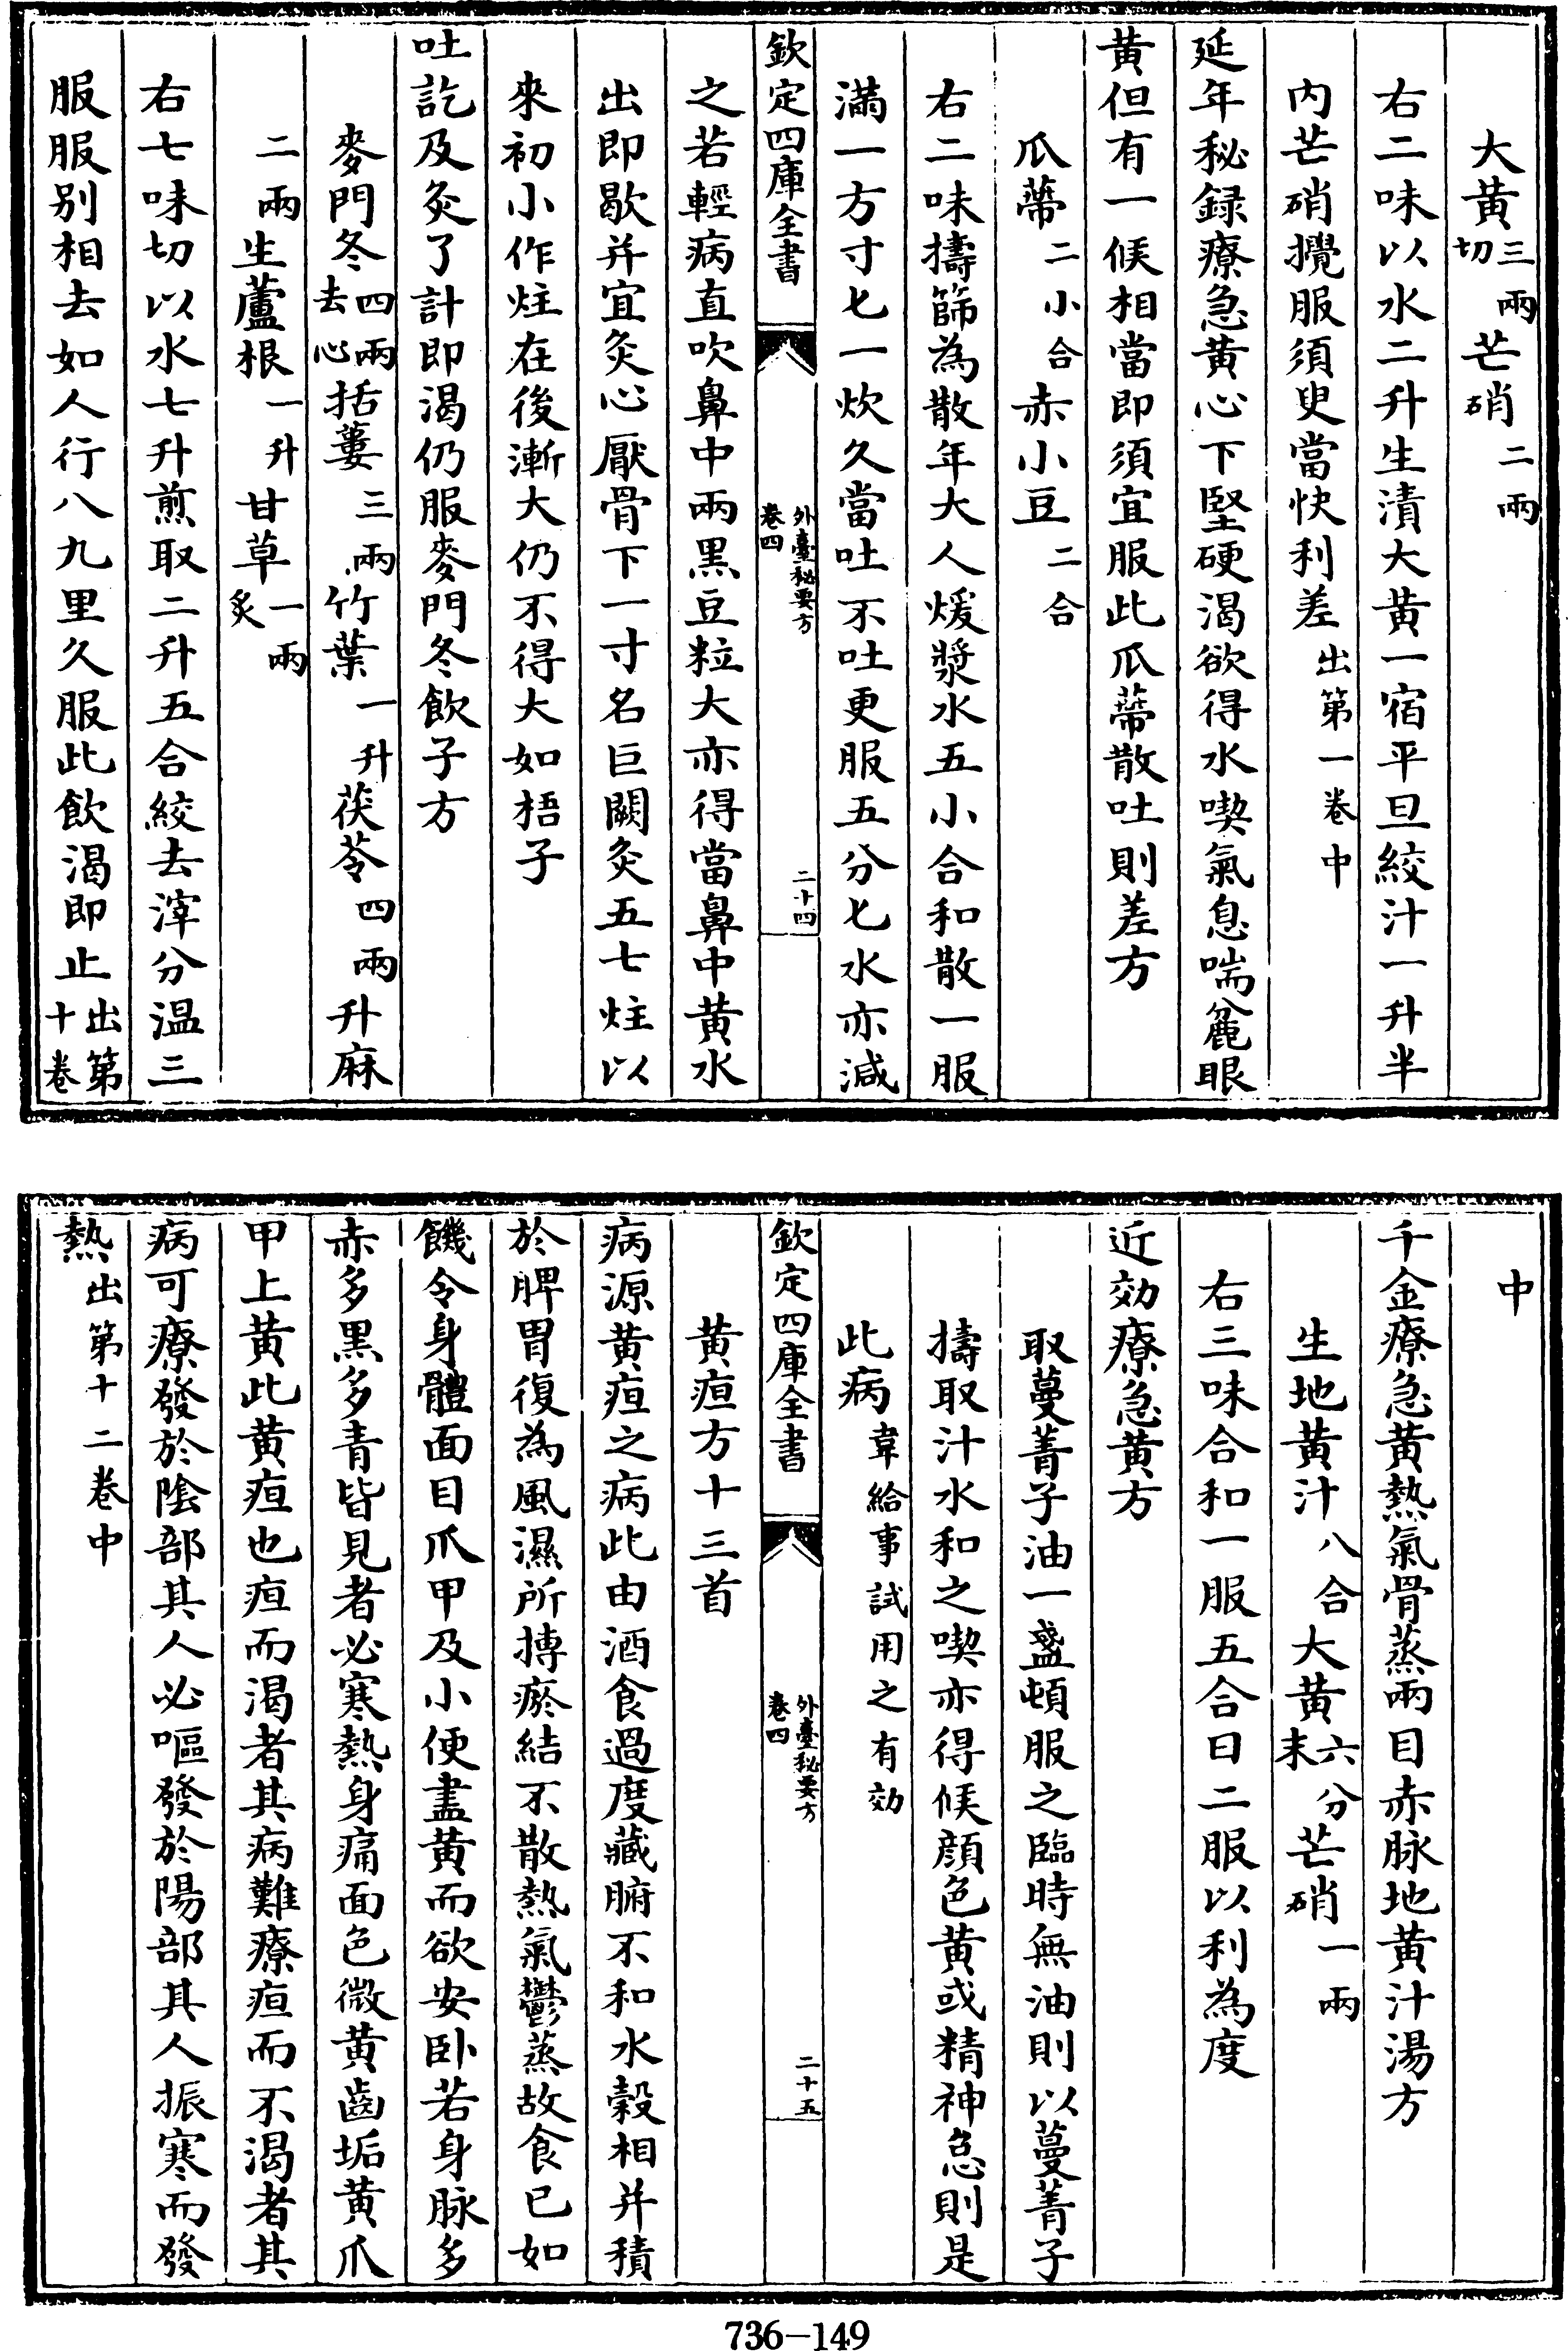 大黄三兩切芒硝二兩
右二味以水二升生漬大黄一宿平旦絞汁一升半
内芒硝攪服須㬰當快利差出第一卷中
延年秘録療急黄心下堅硬渴欲得水喫氣息喘麄眼
黄但有一候相當即須宜服此瓜蔕散吐則差方
瓜蔕二小合赤小豆二合
右二味擣篩為散年大人煖漿水五小合和散一服
滿一方寸匕一炊久當吐不吐更服五分匕水亦減
欽定四庫全書
外臺秘要方
卷四
二十四
之若輕病直吹鼻中兩黒豆粒大亦得當鼻中黄水
出即歇并宜灸心厭骨下一寸名巨闕灸五七炷以
來初小作炷在後漸大仍不得大如梧子
吐訖及灸了計即渴仍服麥門冬飲子方
麥門冬四兩去心括蔞三兩竹葉一升茯苓四兩升麻
二兩生蘆根一升甘草一兩炙
右七味切以水七升煎取二升五合絞去滓分温三
服服别相去如人行八九里久服此飲渴即止出第十卷
中
千金療急黄熱氣骨蒸兩目赤脉地黄汁湯方
生地黄汁八合大黄六分末芒硝一兩
右三味合和一服五合日二服以利為度
近効療急黄方
取蔓菁子油一盞頓服之臨時無油則以蔓菁子
擣取汁水和之喫亦得候顔色黄或精神急則是
此病韋給事試用之有効
欽定四庫全書
外臺秘要方
卷四
二十五
黄疸方十三首
病源黄疸之病此由酒食過度藏腑不和水穀相并積
於脾胃復為風濕所摶瘀結不散熱氣鬱蒸故食已如
饑令身體面目爪甲及小便盡黄而欲安卧若身脉多
赤多黑多青皆見者必寒熱身痛面色微黄齒垢黄爪
甲上黄此黄疸也疸而渴者其病難療疸而不渴者其
病可療發於陰部其人必嘔發於陽部其人振寒而發
熱出第十二卷中
736—149